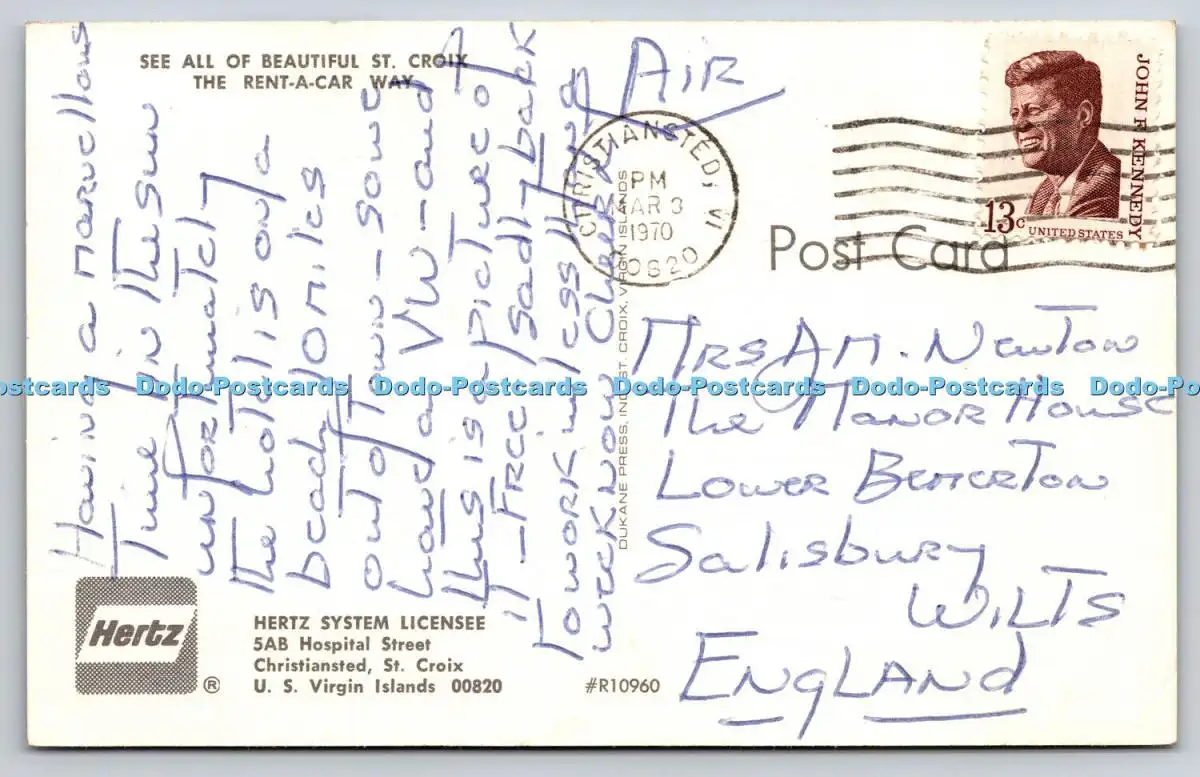 SEE ALL OF BEAUTIFUL ST. CROIX
THE RENT-A-CAR WAY
Having a marvellous
Time in the sun
unfortunately
the hotel is on a
beach 10 miles
out of Town - some
hard a VW - and
this is a picture of
it - Free! Sadly back
to work in less than a
week now Cheers
A
AIR
CHRISTIANSTED, VI
PM
MAR 3
1970
00820
JOHN F. KENNEDY
13c UNITED STATES
Post Card
DUKANE PRESS, INC., ST. CROIX, VIRGIN ISLANDS
Mrs A M. Newton
The Manor House
Lower Bemerton
Salisbury
WILTS
ENGLAND
Hertz
®
HERTZ SYSTEM LICENSEE
5AB Hospital Street
Christiansted, St. Croix
U. S. Virgin Islands 00820
#R10960
Dodo-Postcards Dodo-Postcards Dodo-Postcards Dodo-Postcards Dodo-Postcards Dodo-Postcards